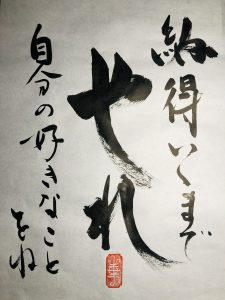 納得いくまで
やれ
自分の好きなこと
をね